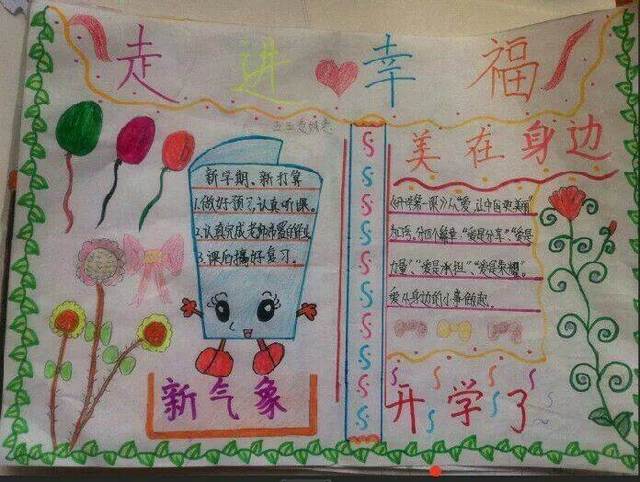 走进幸福
美在身边
新学期、新打算
1.做好预习,认真听课。
2.认真完成老师布置的作业
3.课后搞好复习。
《开学第一课》以"爱,让中国更美丽"
为主,分四个篇章"爱是分享"、"爱是
力量"、"爱是承担"、"爱是荣耀"。
爱从身边的小事做起。
新气象
开学了